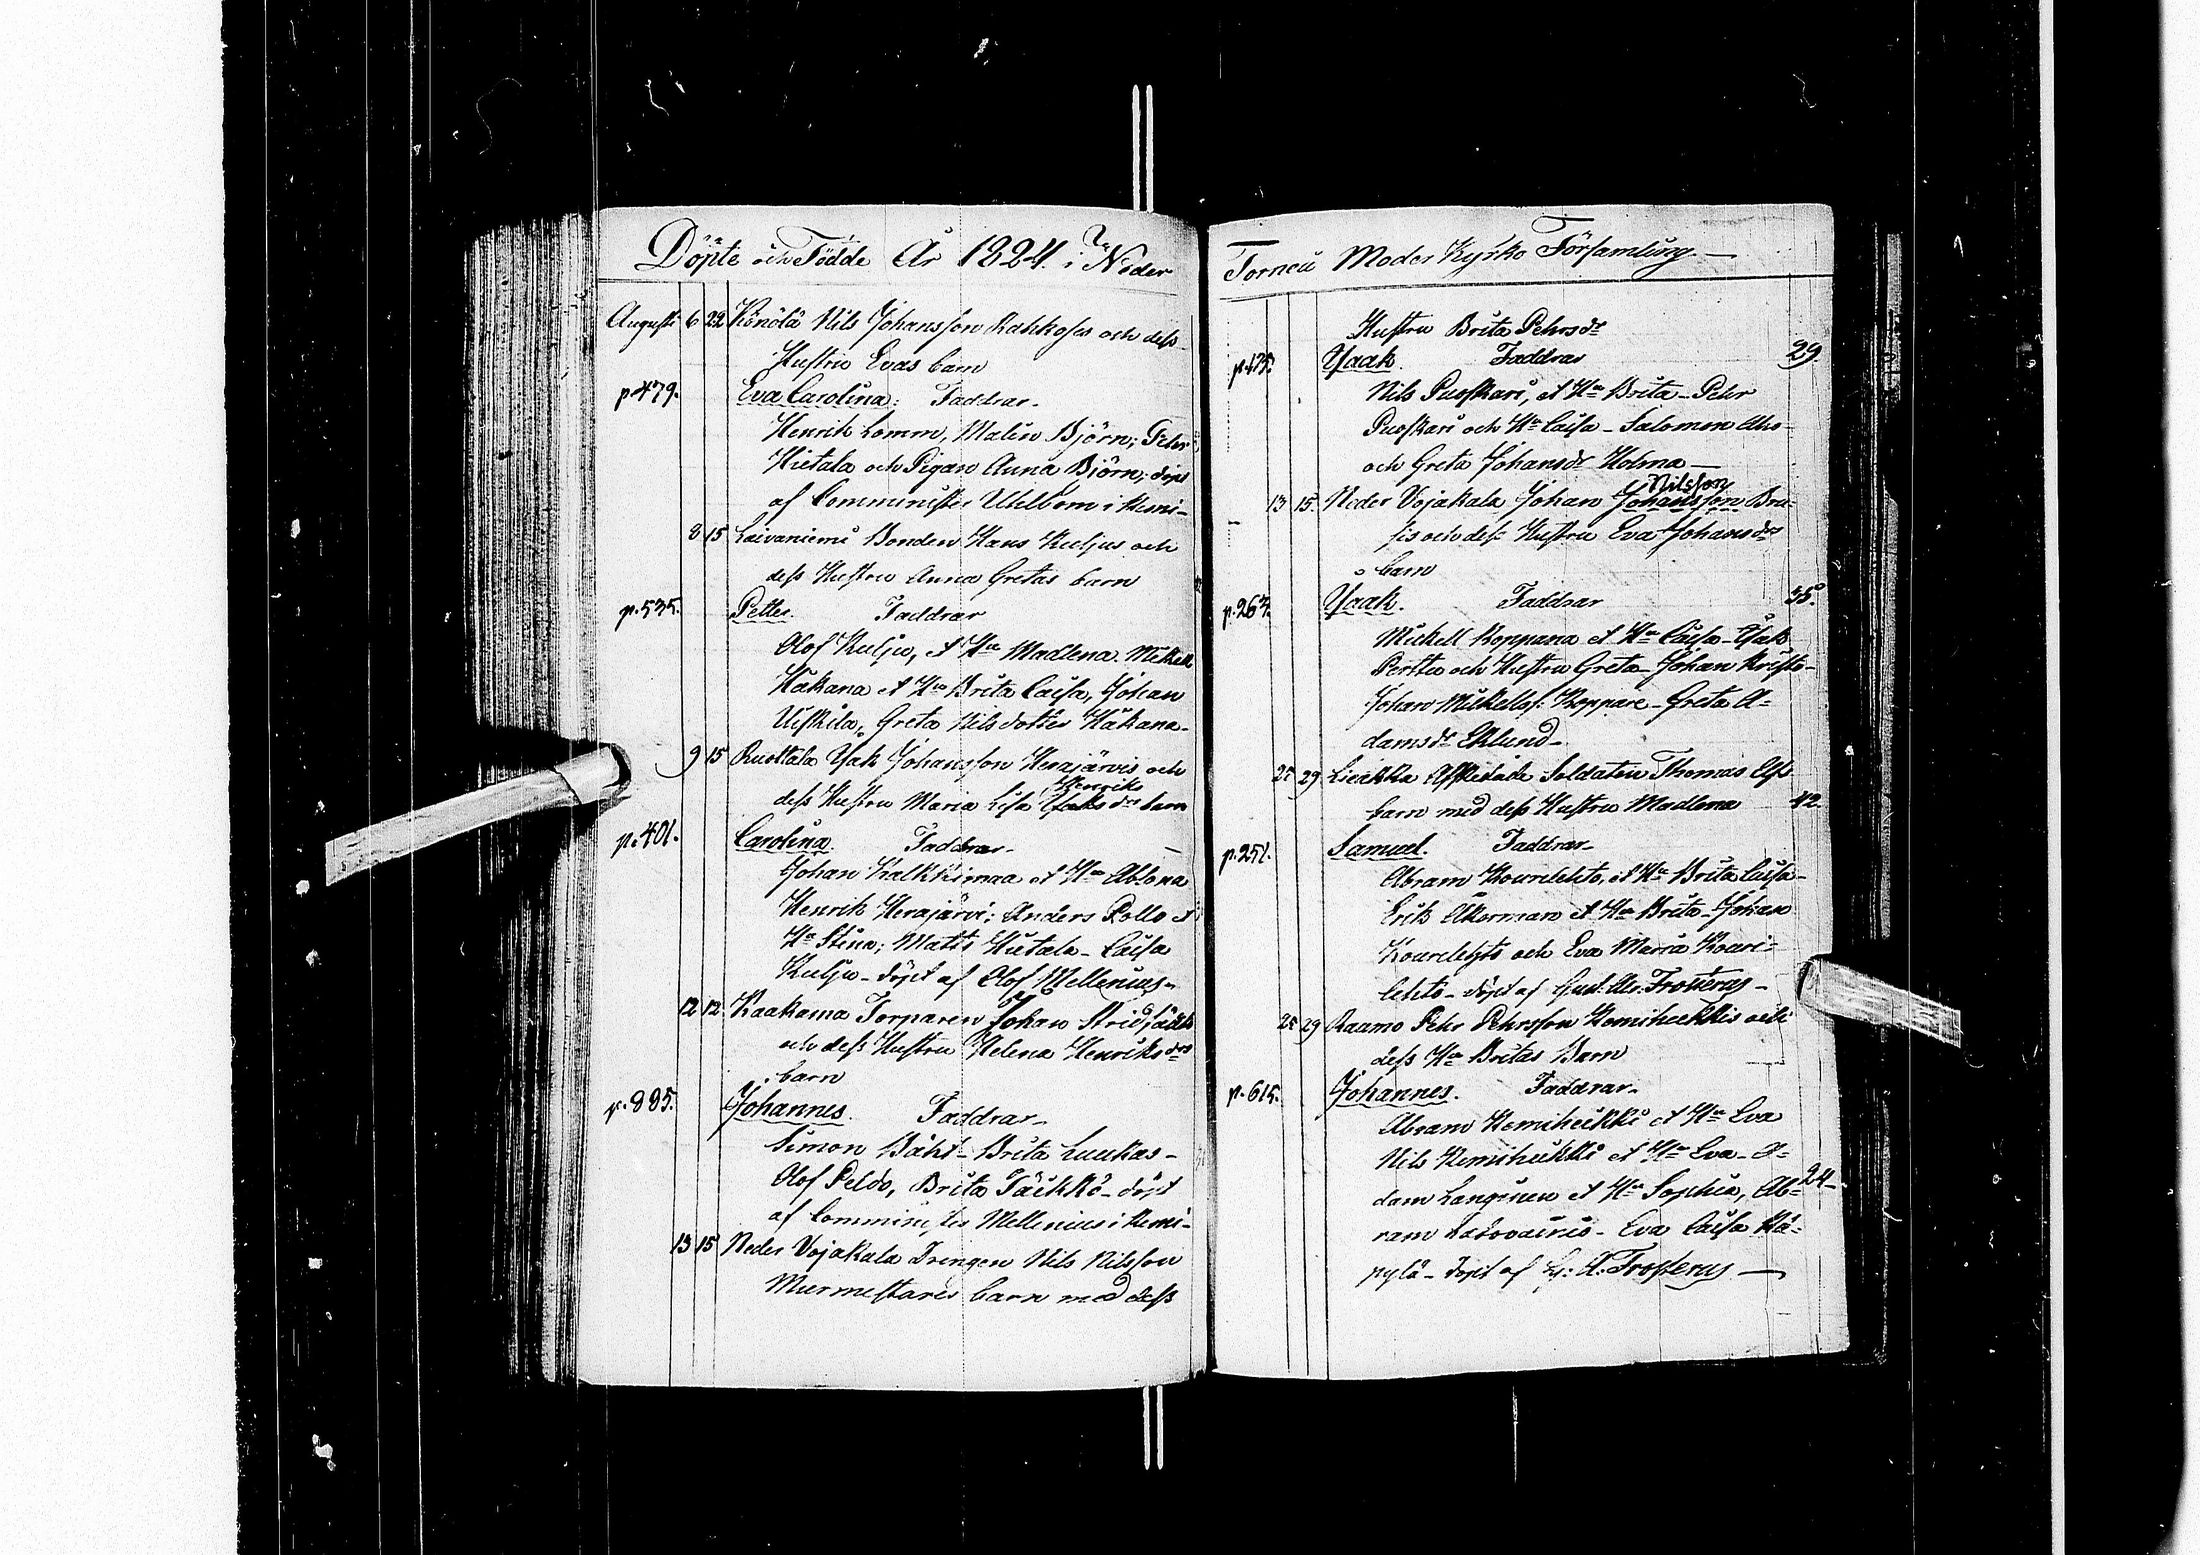 Döpte och Födde År 1824. i Neder
Augusti 6 22 Könölä Nils Johansson Rahkojas och dess
Hustru Evas barn
p 479. Eva Carolina: Faddrar.
Henrik Lomm, Malin Björn; Pehr
Hietala och Pigan Anna Björn; döpt
af Comminister Uhlbom i Kemi-
8 15 Laivaniemi Bonden Hans Kuljus och
dess Hustru Anna Gretas barn
p. 535. Petter. Faddrar
Olof Kuljus, et Hu Madlena. Mickell
Håkana et Hu Brita Caisa, Johan
Uiskila, Greta Nils dotter Håkana-
9 15 Ruottala Jak Johansson Herajärvis och
Henriks
dess Hustru Maria Lisa Jaks drs barn
p. 401. Carolina. Faddrar-
Johan Kalkkimaa et Hu Ablona
Henrik Herajärvi; Anders Rollo et
Hu Stina; Matts Hietala- Caisa
Kuljus- döpt af Olof Mellenius-
12 12 Kaakama Torparen Johan
och dess Hustru Helena Henriks drs
barn
p. 885. Johannes. Faddrar-
Simon Båht- Brita Luukas-
Olof Peldo, Brita Täikkö- döpt
af Comminister Mellenius i Kemi-
13 15 Neder Vojakala Drengen Nils Nilsson
Murmestares barn med dess
Torneå Moder Kyrko Församling.
Hustru Brita Pehrs dr
Jaak. Faddrar 29
Nils Puoskari, et Hu Brita- Pehr
Puoskari och Hu Caisa- Salomon Aho-
och Greta Johans dr Holma-
Nilsson
13 15. Neder Vojakala Johan Johansson Bru-
sis och dess Hustru Eva Johans drs
barn
p. 263. Jaak. Faddrar 35.
Mickell Koppana et Hu Caisa- Jak
Perttu och Hustru Greta- Johan Kristo-
Johan Mickellss: Koppare- Greta A-
dams dr Eklund-
25 29 Liakka Afskedade Soldaten Thomas Elfs
barn med dess Hustru Madlena 42.
p. 251. Samuel. Faddrar-
Abram Kourilehto, et Hu Brita Caisa-
Erik Åkerman et Hu Brita- Johan
Kourilehto och Eva Maria Kouri-
lehto- döpt af Gust: Ad: Frosterus-
25 29 Raumo Pehr Pehrsson Kemihukkis och
dess Hu Britas Barn
p. 615. Johannes. Faddrar-
Abram Kemihukki et Hu Eva
Nils Kemihukki et Hu Eva- A-
dam Langinen et Hu Sophia, Ab- 24-
ram Katovainio- Eva Caisa Kä-
pylä- döpt af G: A: Frosterus-